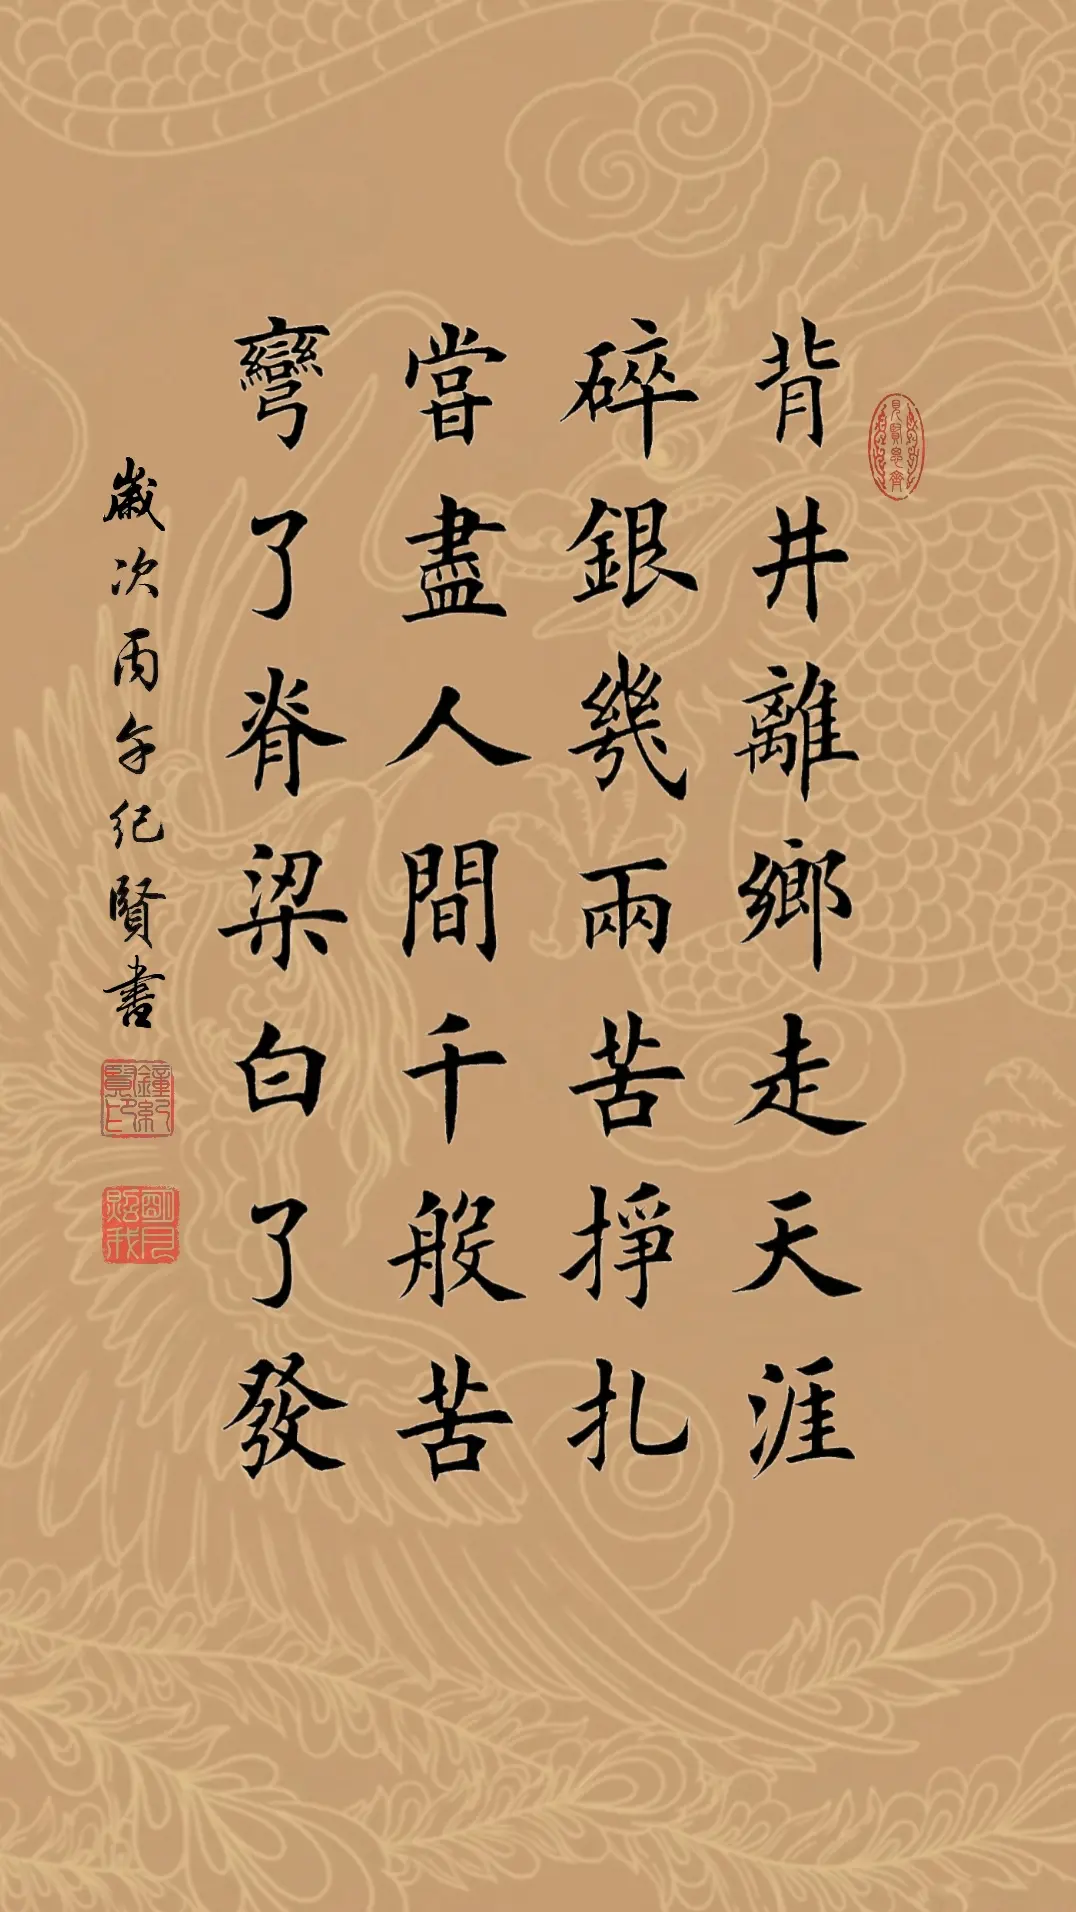 背井離鄉走天涯
碎銀幾兩苦掙扎
嘗盡人間千般苦
彎了脊梁白了發
歲次丙午紀賢書
見賢思齊
鐘紀賢印